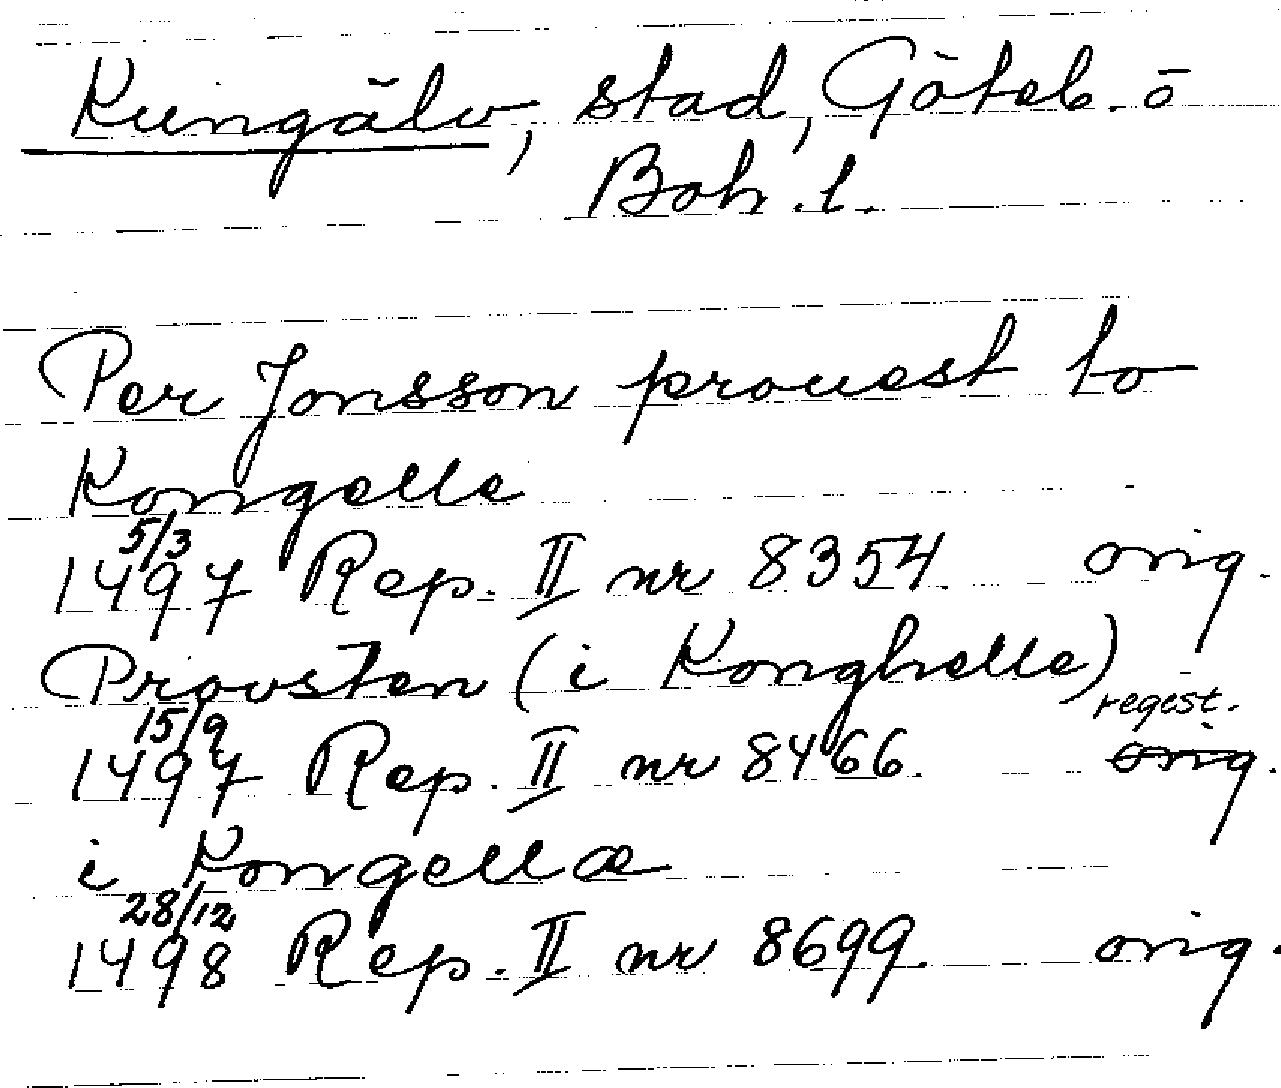 Kungälv, stad, Göteb. o
Boh. l.
Per Jonsson prouest to
Kongelle
5/3
1497 Rep. II nr 8354 orig.
Provsten (i Konghelle)
15/9 regest.
1497 Rep. II nr 8466. orig.
i Kongellæ
28/12
1498 Rep. II nr 8699. orig.